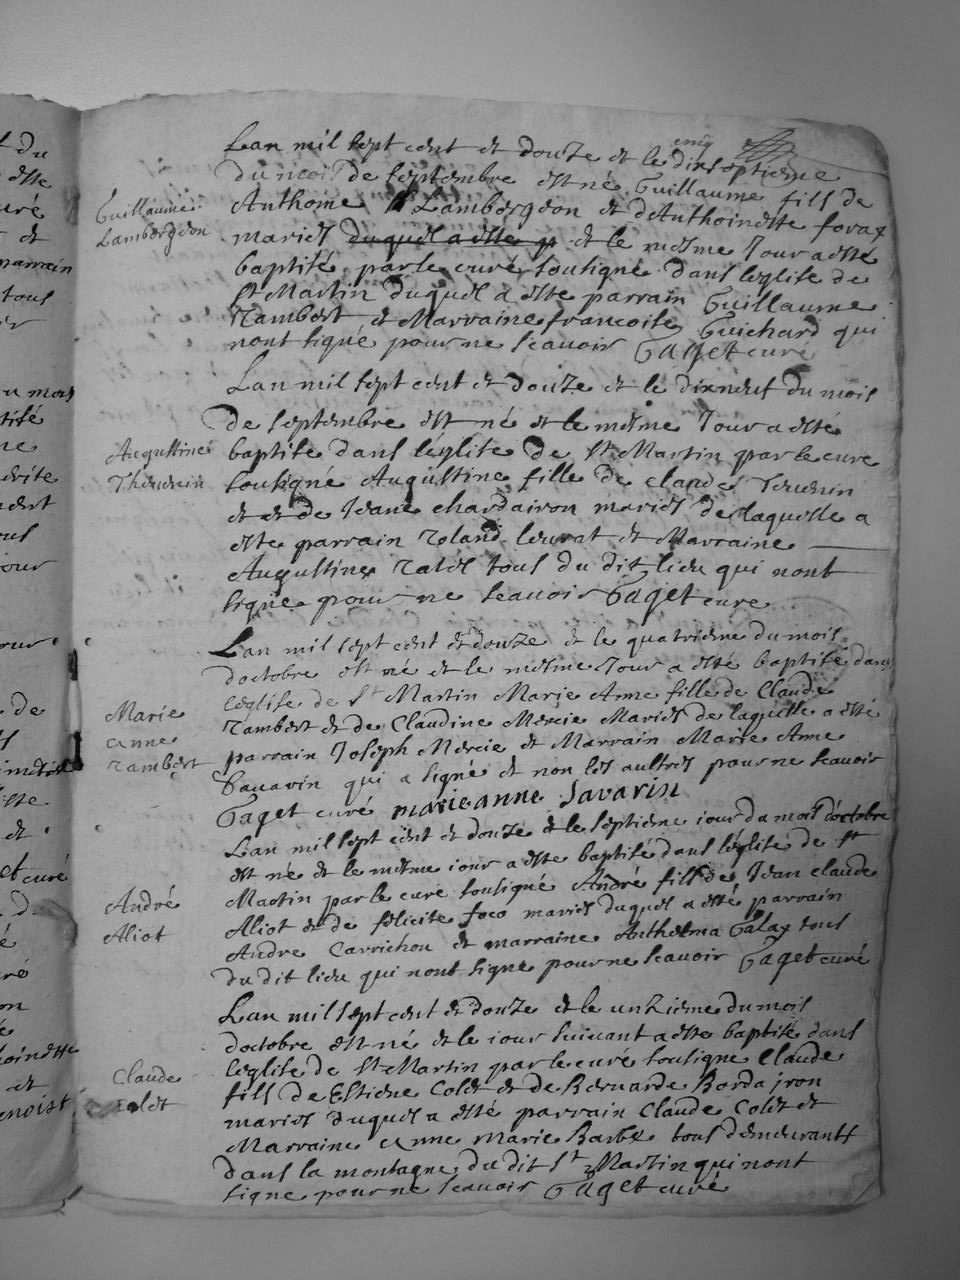 Lan mil sept cent et douze et le dixseptieme
cinq
du mois de septembre est né Guillaume fils de
Guillaume
Lambergeon
Anthoine Lambergeon et dAnthoinette forax
mariés duquel a este p et le mesme Jour a esté
baptisé par le curé sousigné dans leglise de
St Martin duquel a este parrain Guillaume
Rambert et Marraine francoise Guichard qui
nont signé pour ne scauoir Gaget curé
Lan mil sept cent et douze et le dixneuf du mois
de septembre est né et le mesme Jour a esté
Augustine
Theuenin
baptise dans léglise de St Martin par le cure
sousigné Augustine fille de claude Teuenin
et et de Jeane chardairon mariés de laquelle a
este parrain Roland leurat et Marraine
Augustine Ralés tous du dit lieu qui nont
signe pour ne scauoir Gaget cure
Lan mil sept cent et douze et le quatrieme du mois
doctobre est né et le mesme Jour a esté baptisé dans
leglise de St Martin Marie Anne fille de Claude
Marie
anne
Rambert
Rambert et de Claudine Mercie Mariés de laquelle a esté
parrain Joseph Mercie et Marrain Marie Anne
Sauarin qui a signé et non les aultres pour ne scauoir
Gaget curé marieanne Savarin
Lan mil sept cent et douze et le septieme iour du mois doctobre
est né et le mesme iour a este baptisé dans léglise de St
Martin par le cure sousigné André fils de Jean claude
André
Aliot
Aliot et de felicite foco mariés duquel a esté parrain
Andre Carrichon et marraine Anthelma Galay tous
du dit lieu qui nont signe pour ne scauoir Gaget curé
Lan mil sept cent et douze et le unzieme du mois
doctobre est né et le iour suiuant a este baptisé dans
leglise de St Martin par le curé sousigne Claude
Claude
Colet
fils de Estiene Colet et de Bernarde Bordajron
mariés duquel a esté parrain Claude Colet et
Marraine anne marie Barbe tous demeurants
dans la montagne du dit St Martin qui nont
signe pour ne scauoir Gaget curé